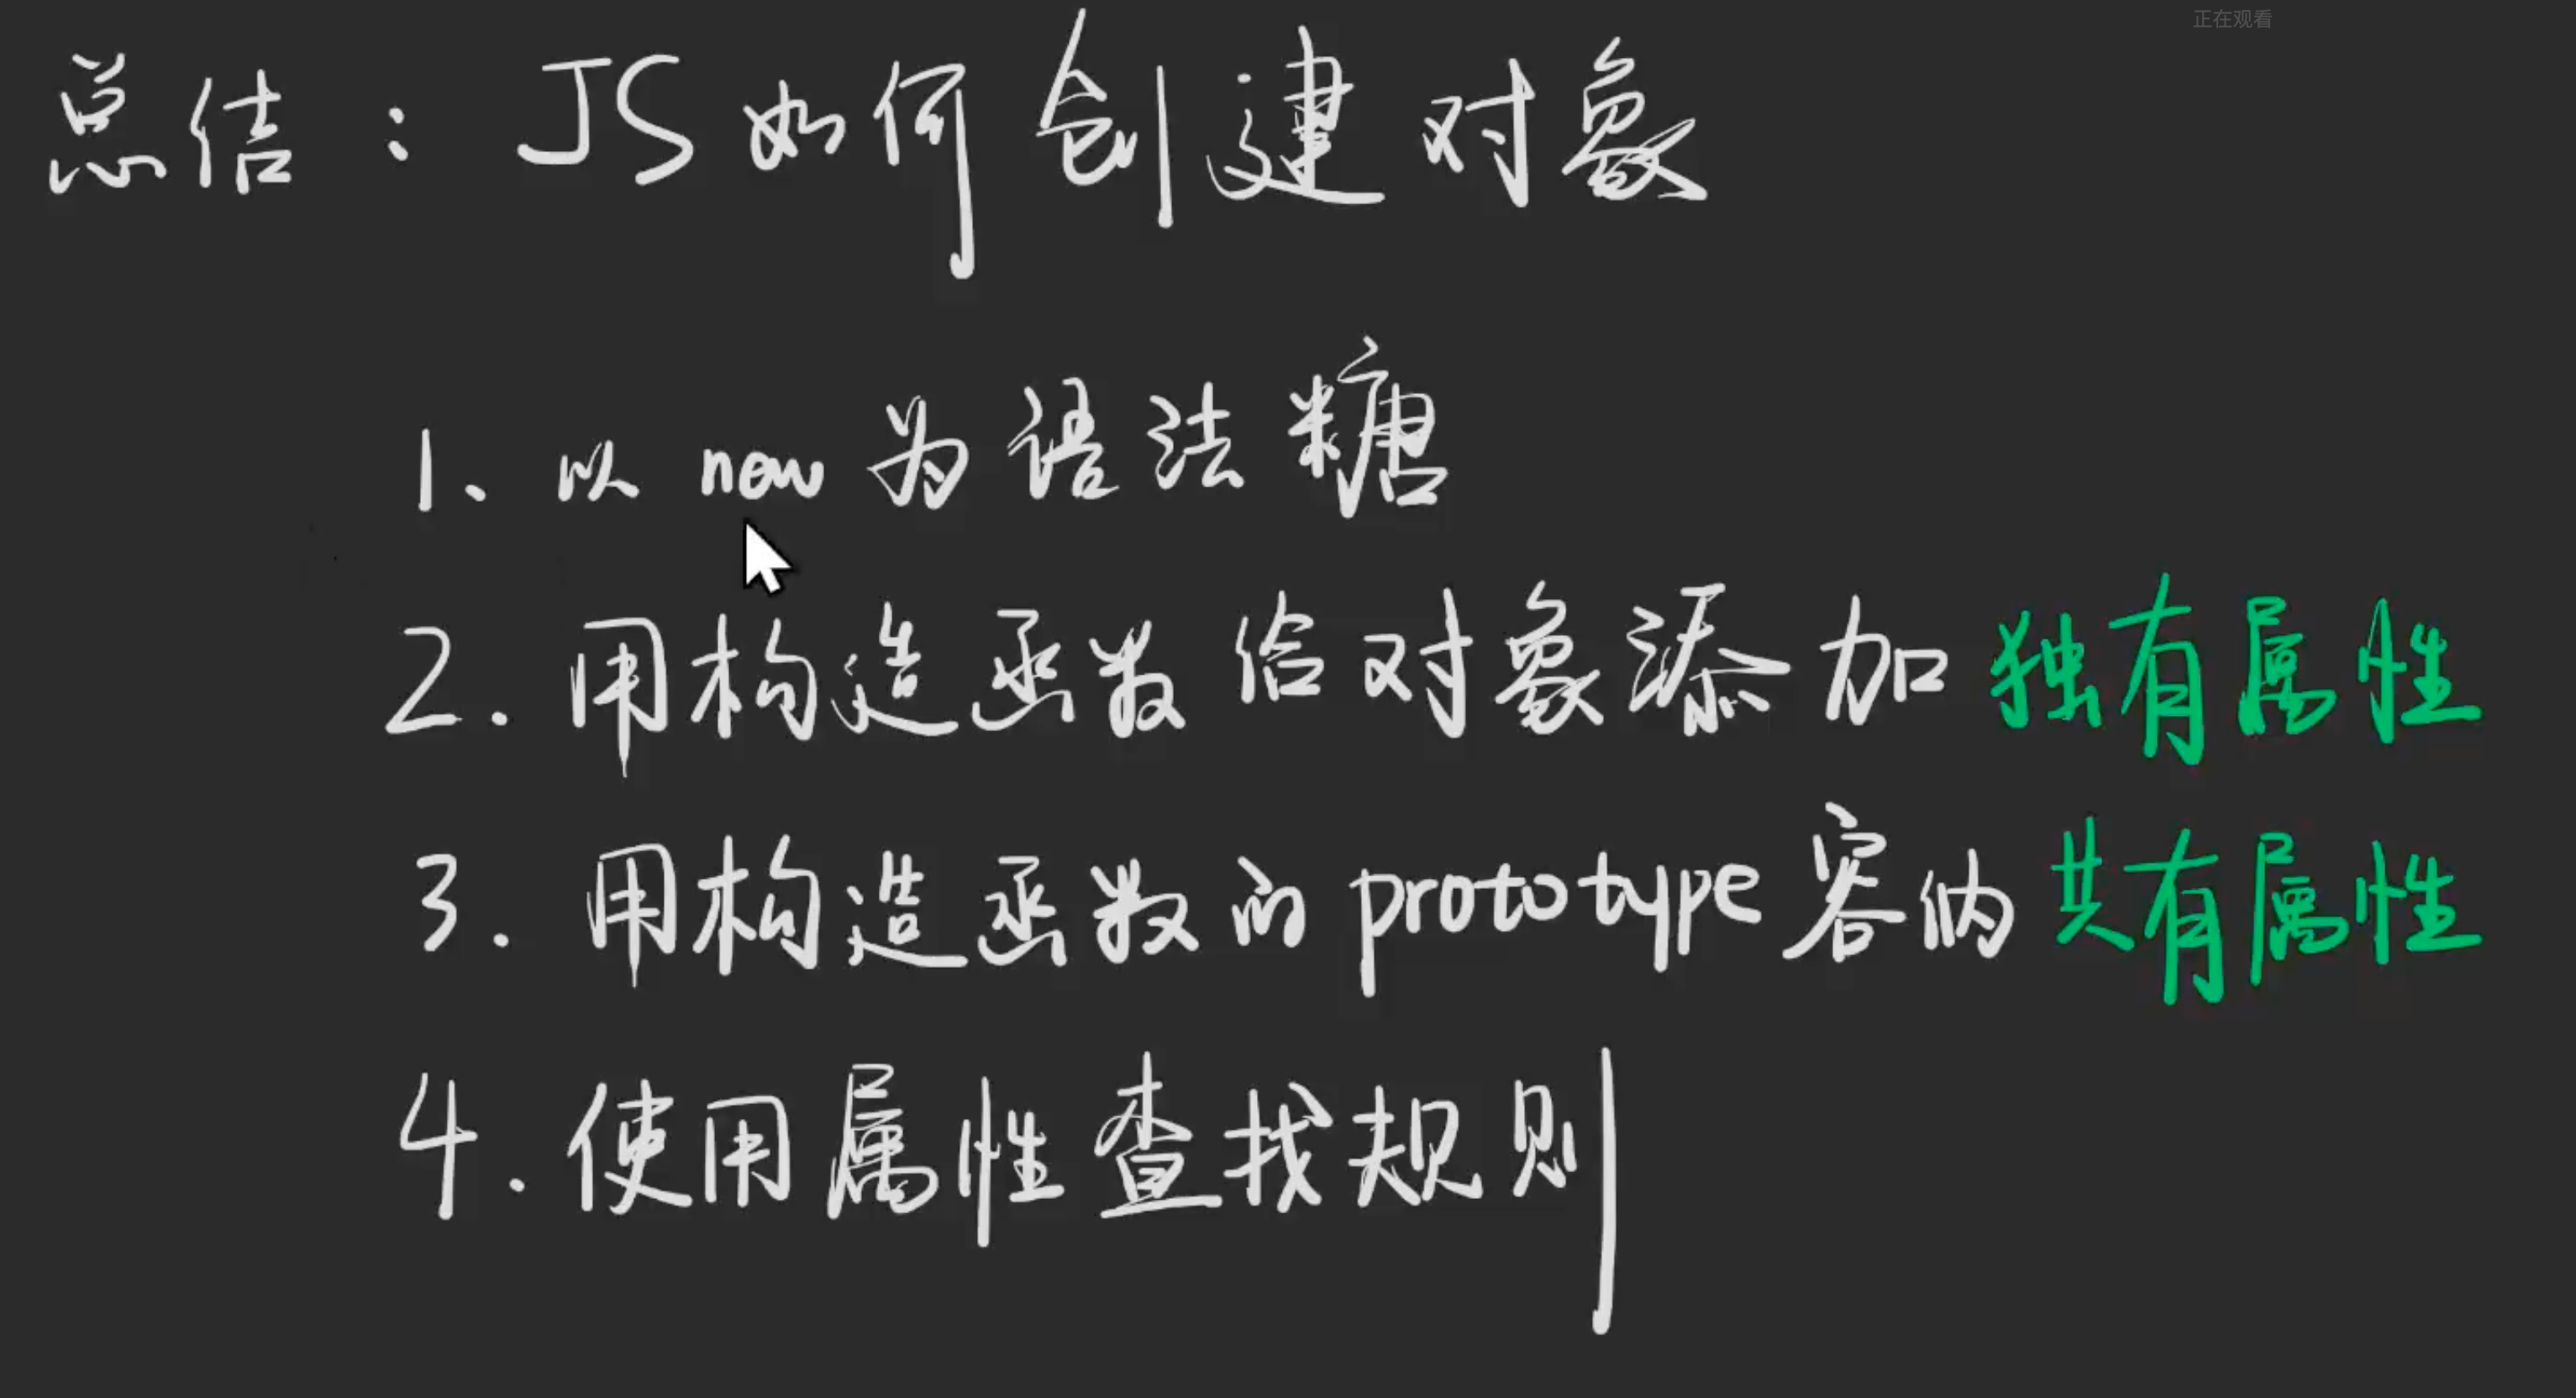 正在观看
总结：JS如何创建对象
1、以new为语法糖
2.用构造函数给对象添加独有属性
3.用构造函数的prototype容纳共有属性
4.使用属性查找规则